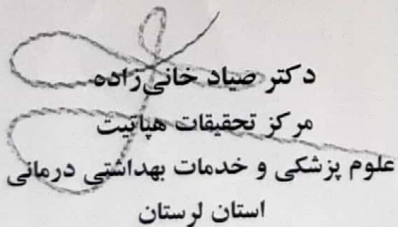 دکتر صیاد خانی‌زاده
مرکز تحقیقات هپاتیت
علوم پزشکی و خدمات بهداشتی درمانی
استان لرستان